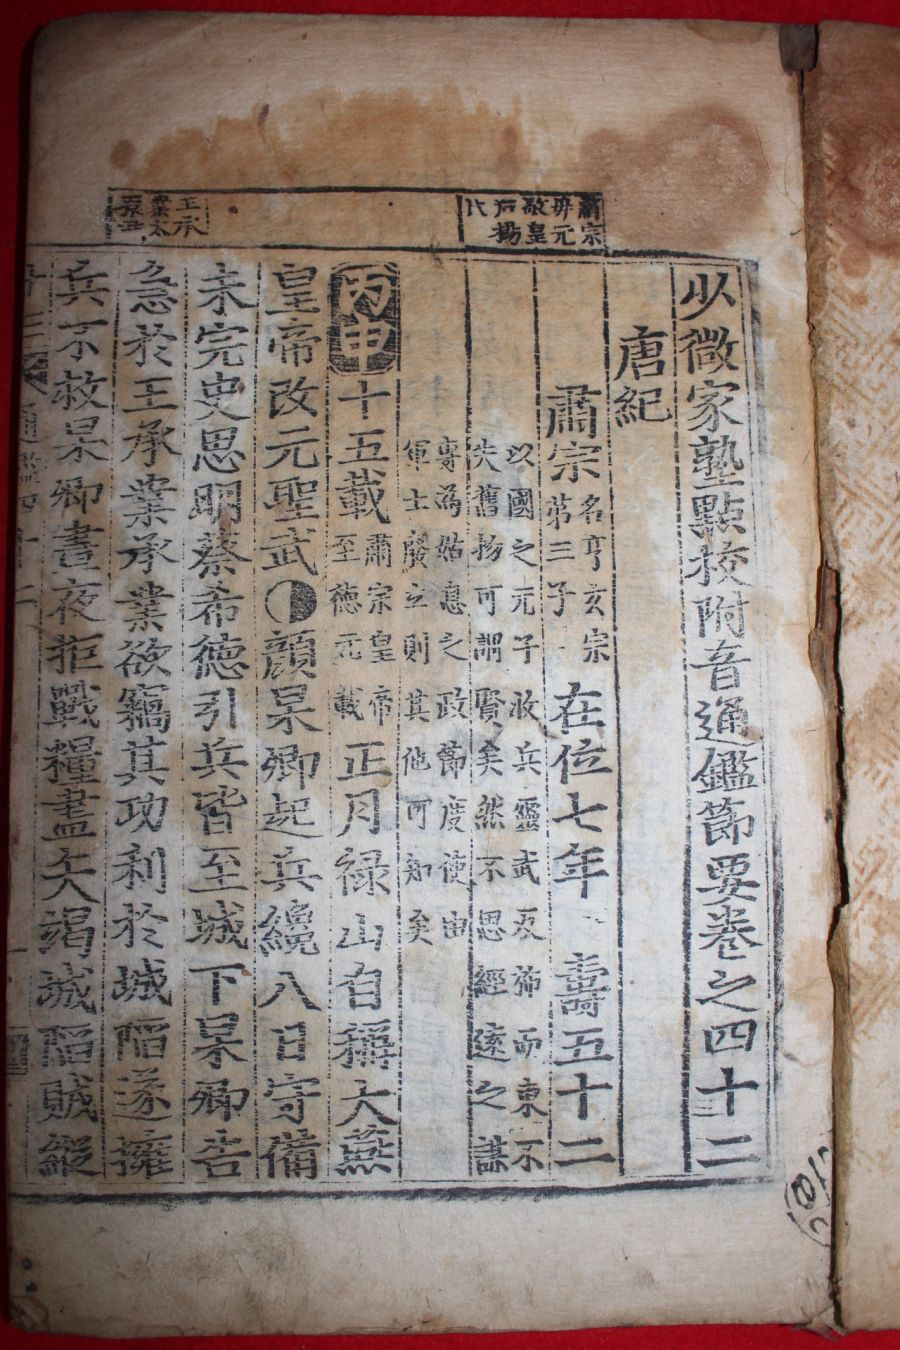 肅宗
王承
業太
原尹
少微家塾點校附音通鑑節要卷之四十二
唐紀
肅宗名亨玄宗第三子在位七年壽五十二
以國之元子收兵靈武反旆而東不
失舊物可謂賢矣然不思經遠之謀
專爲姑息之政節度使由
軍士廢立則其他可知矣
丙申十五載肅宗皇帝至德元載正月祿山自稱大燕
皇帝改元聖武顔杲卿起兵纔八日守備
未完史思明蔡希德引兵皆至城下杲卿告
急於王承業承業欲竊其功利於城陷遂擁
兵不救杲卿晝夜拒戰糧盡矢竭城陷賊縱